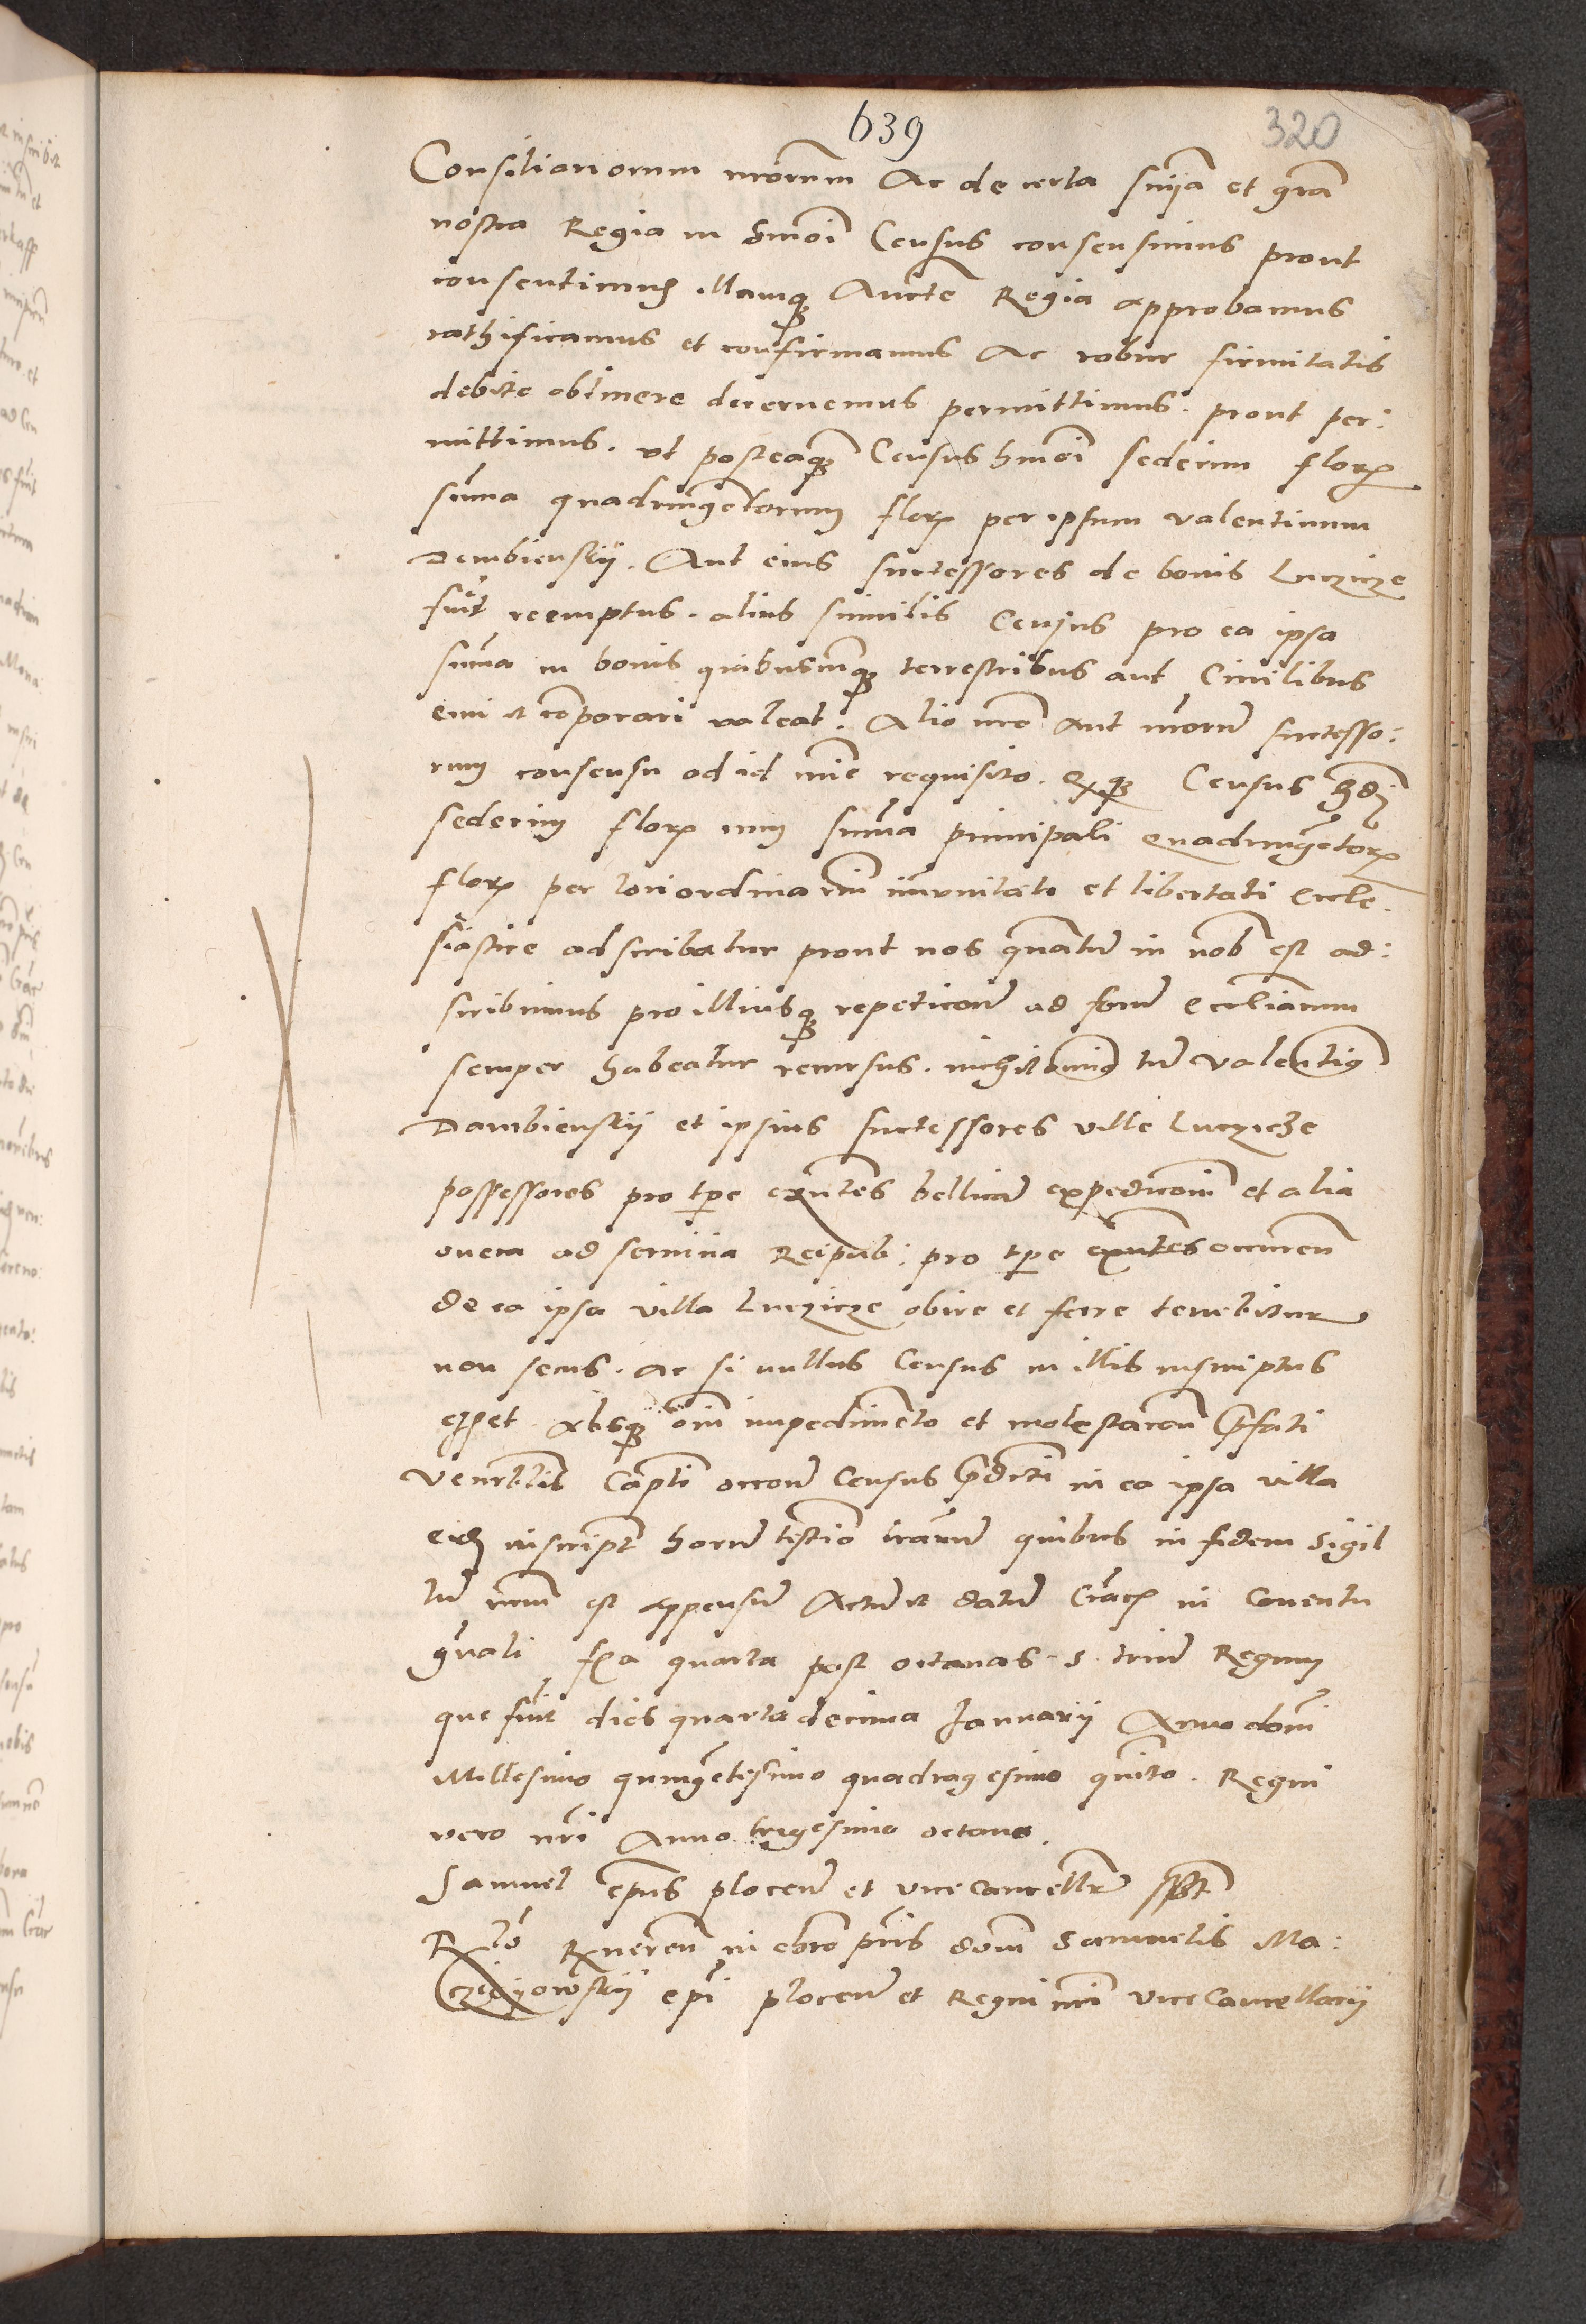 639
320
Consiliariorum nrorum Ac de certa scientia et gra
nostra Regia in hmoi Census consensimus prout
consentimus illamq Aucte Regia approbamus
rathificamus et confirmamus Ac robur firmitatis
debite obtinere decernemus permittimus. prout per:
mittimus. ut posteaq Census hmoi sedecim flor
suma quadringetorum flor per ipsum valentinum
Dembienskij. Aut eius successores de bonis Luczicze
fuit reemptus. alius similis Census pro ea ipsa
suma in bonis quibuscuq terrestribus aut Civilibus
emi et coparari valeat. Alio nro aut nrorum successo:
rum consensu ad id mie requisito. Exq Census
sedecim flor cum suma principali quadringetor
flor per loci ordinarium imunitati et libertati Eccle.
siastice adscribatur prout nos quatum in nob est ad:
scribimus pro illiusq repeticione ad forum ecclianum
semper habeatur recursus. nichilominus tum valentinus
Dambienskij et ipsius successores ville Lucziche
possessores pro tpre exntes bellicam expedicionem et alia
onera ad servitia Reipub: pro tpre exntes occuren
de ea ipsa villa Luczicze obire et ferre tenebitur
non secus. ac si nullus Census in illis inscriptus
esset Absq omi impedimento et molestacone prefati
Venerablis Capti occone Census predicti in ea ipsa villa
eid inscript harum testio lrarum quibus in fidem sigil
lum nrum est appensum Actum et datum Crac in Conventu
gnali fia quarta post octavas S. trium Regum
que fuit dies quarta decima Januarij Anno dom
Millesimo quingetesimo quadragesimo quinto. Regni
vero nri Anno trigesimo octavo.
Samuel Eps plocen et vice Cancellr sspt
Rlo Reveren in chro pris dom Samuelis Ma:
Cziejowskij epi plocen et Regni nri vice Cancellarij